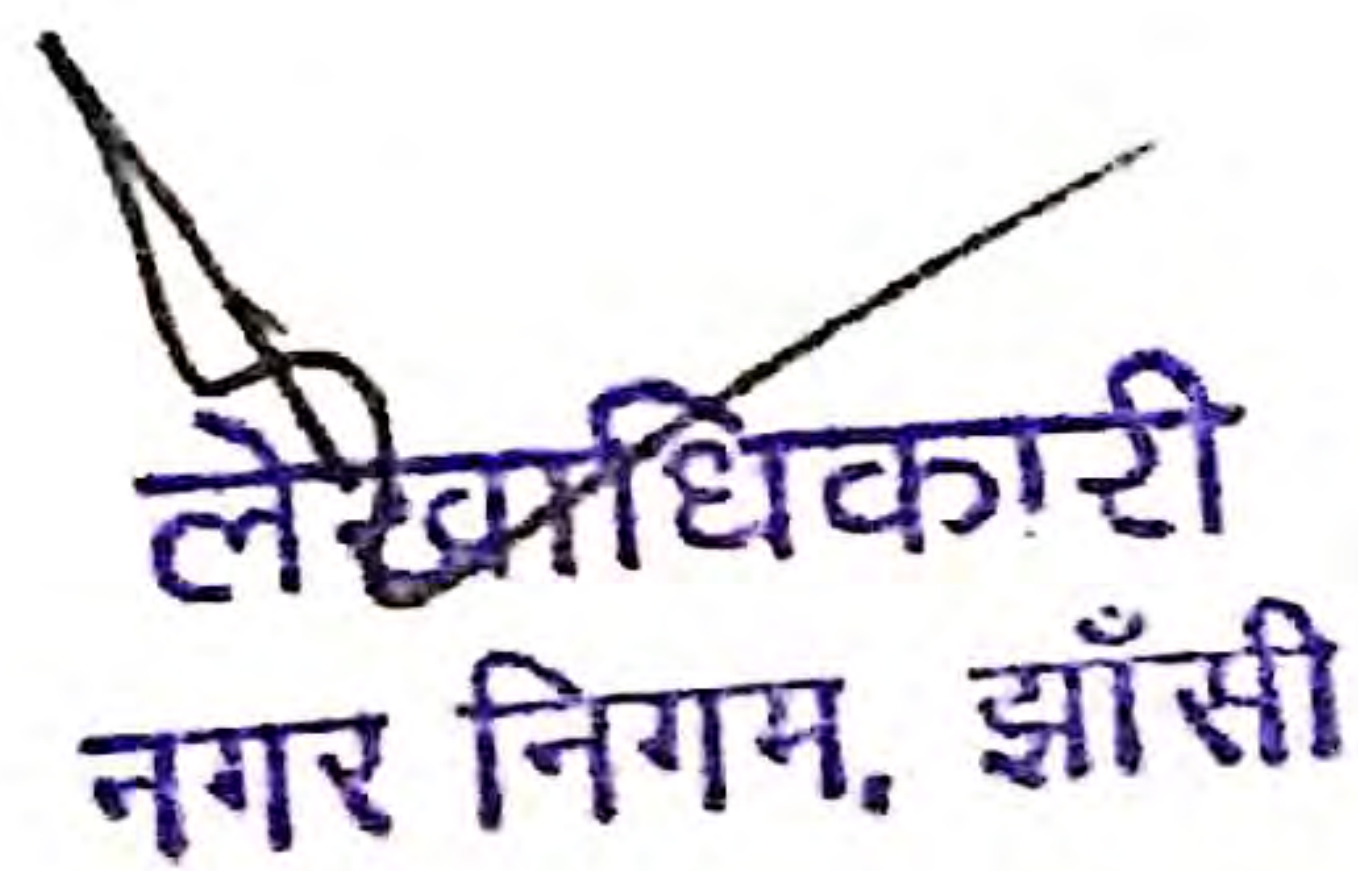 लेखाधिकारी
नगर निगम, झाँसी